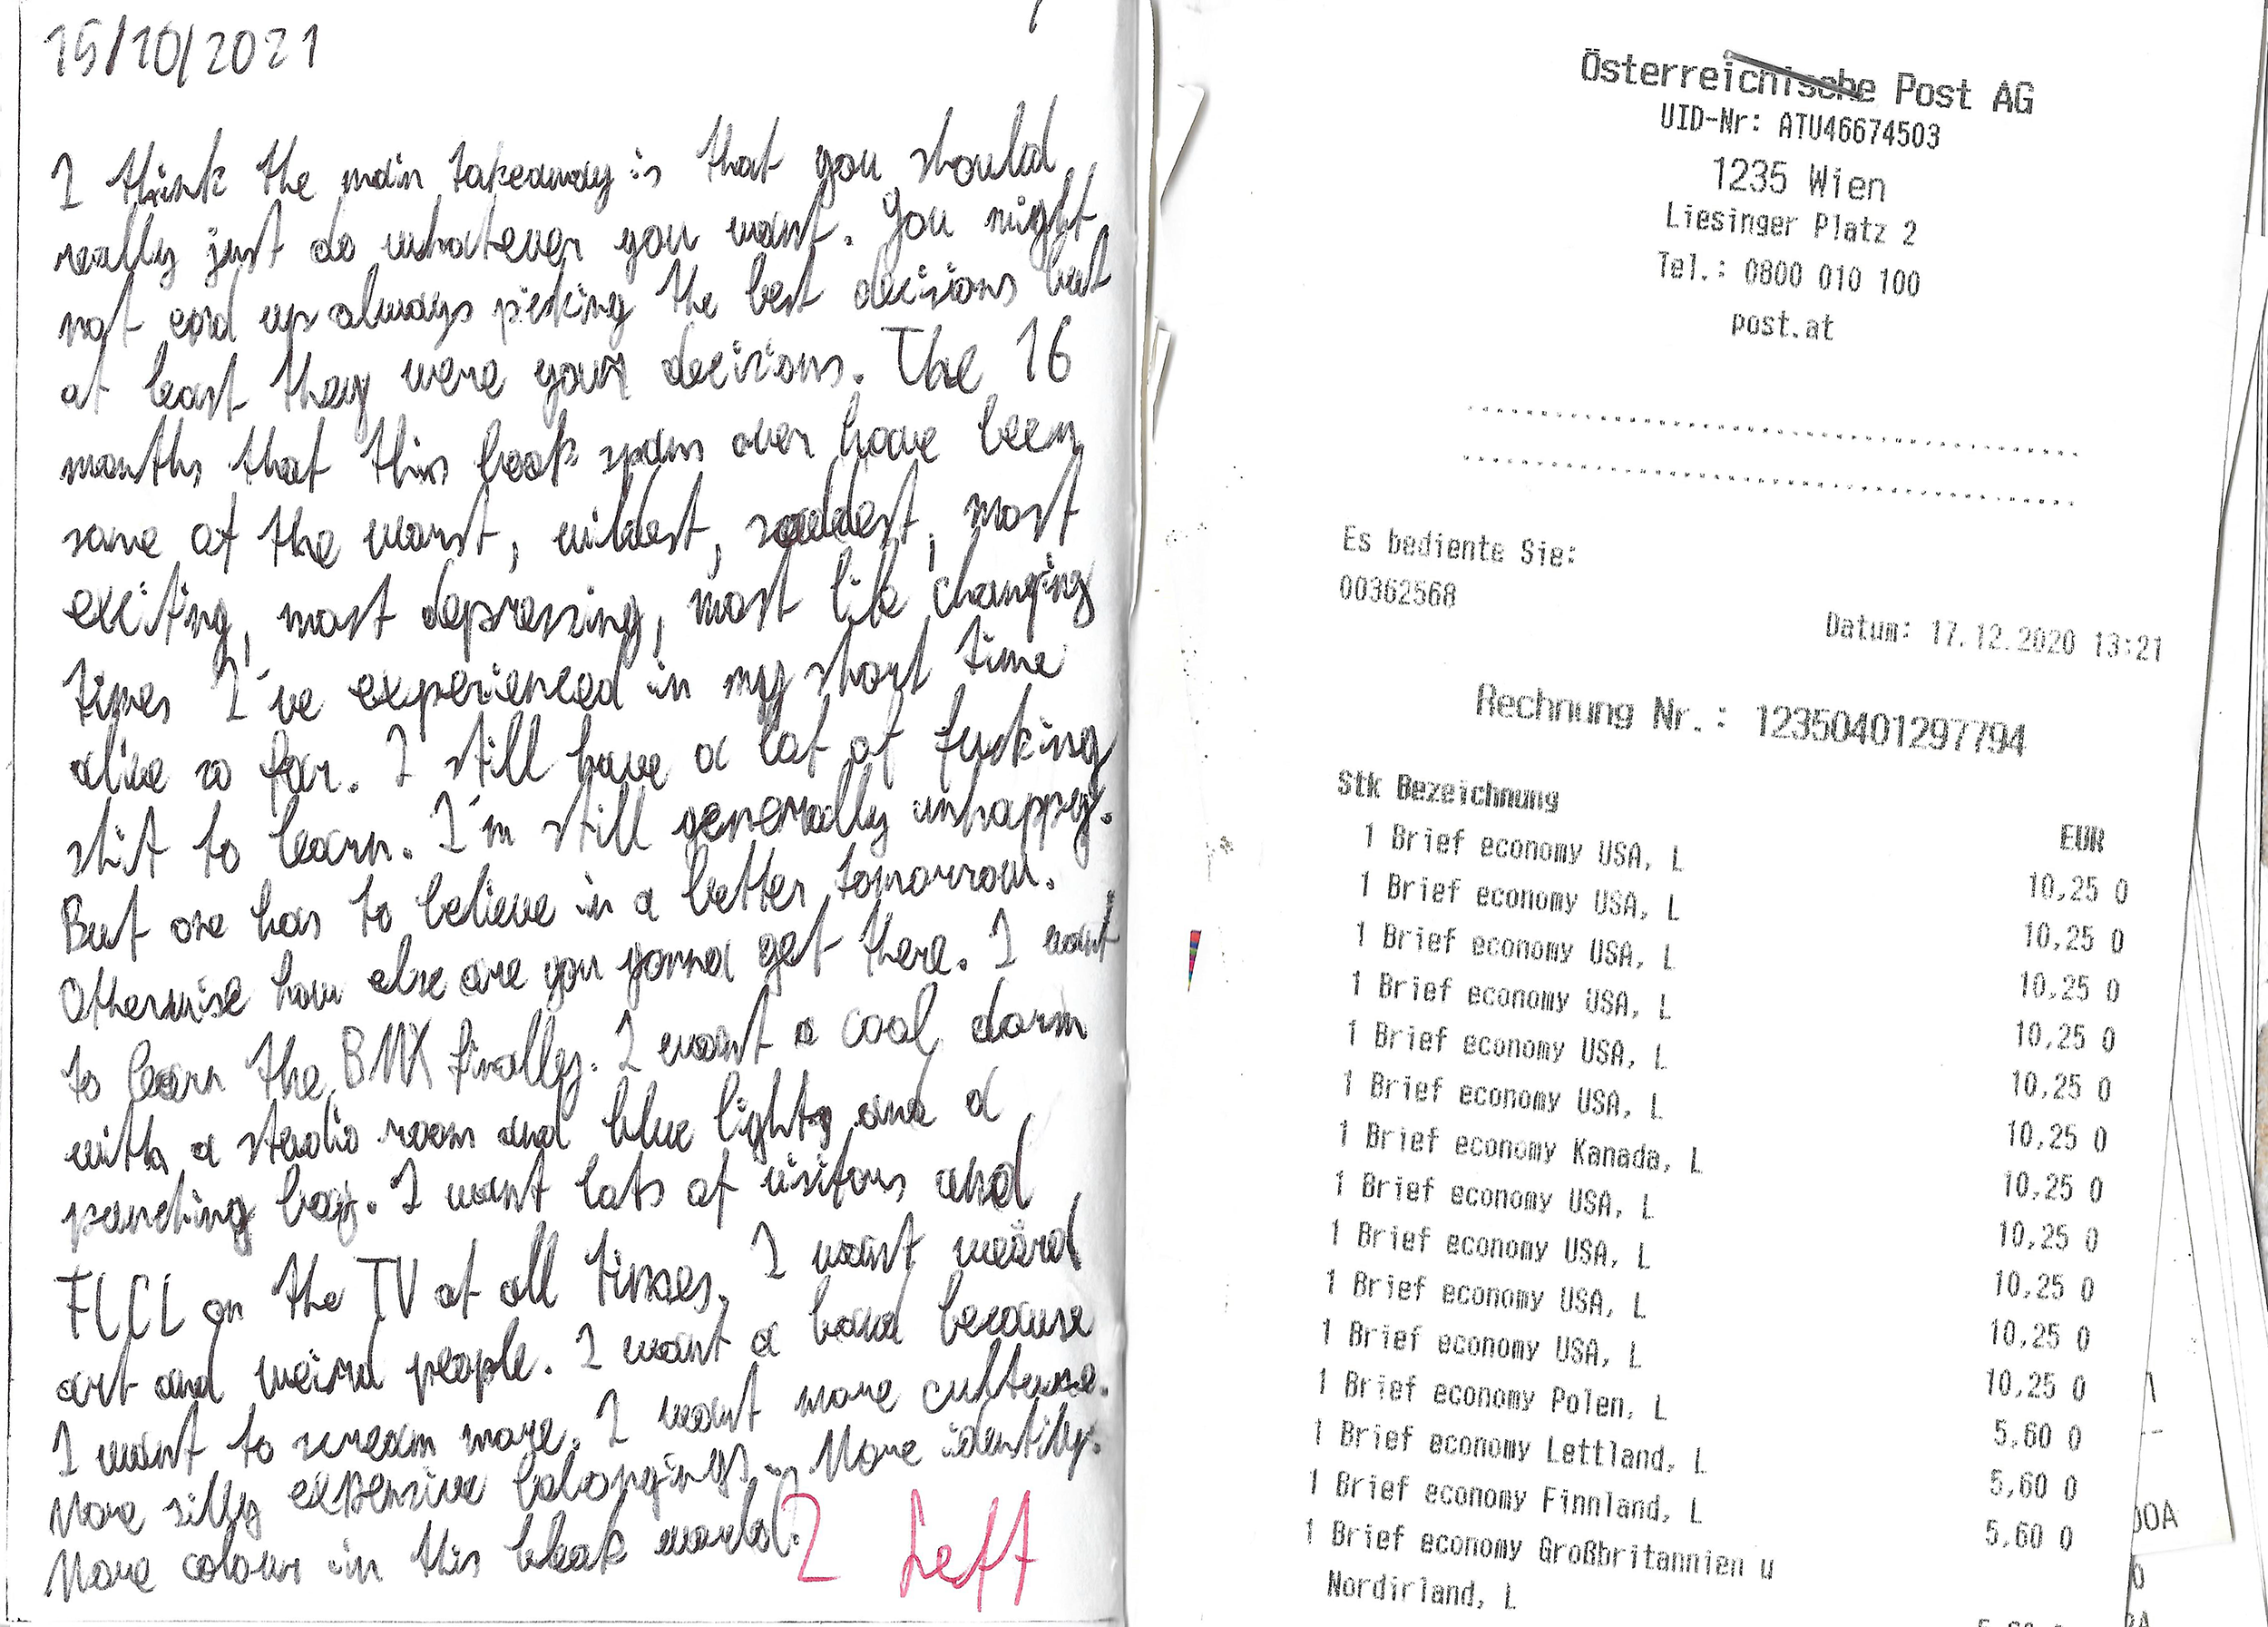 15/10/2021
I think the main takeaway is that you should
really just do whatever you want. You might
not end up always picking the best decisions but
at least they were your decisions. The 16
months that this book spans over have been
some of the worst, wildest, saddest, most
exciting, most depressing, most life changing
times I've experienced in my short time
alive so far. I still have a lot of fucking
shit to learn. I'm still generally unhappy.
But one has to believe in a better tomorrow.
Otherwise how else are you gonna get there. I want
to learn the BMX finally. I want a cool dorm
with a studio room and blue lights and a
punching bag. I want lots of visitors and
FLCL on the TV at all times. I want weird
art and weird people. I want a band because
I want to scream more. I want more culture.
More silly expensive belongings. More identity.
More colour in this bleak world.
2 Left
Österreichische Post AG
UID-Nr: ATU46674503
1235 Wien
Liesinger Platz 2
Tel.: 0800 010 100
post.at
Es bediente Sie:
00362568
Datum: 17.12.2020 13:21
Rechnung Nr.: 12350401297794
Stk Bezeichnung
EUR
1 Brief economy USA, L 10,25 0
1 Brief economy USA, L 10,25 0
1 Brief economy USA, L 10,25 0
1 Brief economy USA, L 10,25 0
1 Brief economy USA, L 10,25 0
1 Brief economy USA, L 10,25 0
1 Brief economy Kanada, L 10,25 0
1 Brief economy USA, L 10,25 0
1 Brief economy USA, L 10,25 0
1 Brief economy USA, L 10,25 0
1 Brief economy USA, L 10,25 0
1 Brief economy Polen, L 5,60 0
1 Brief economy Lettland, L 5,60 0
1 Brief economy Finnland, L 5,60 0
1 Brief economy Großbritannien u
Nordirland, L